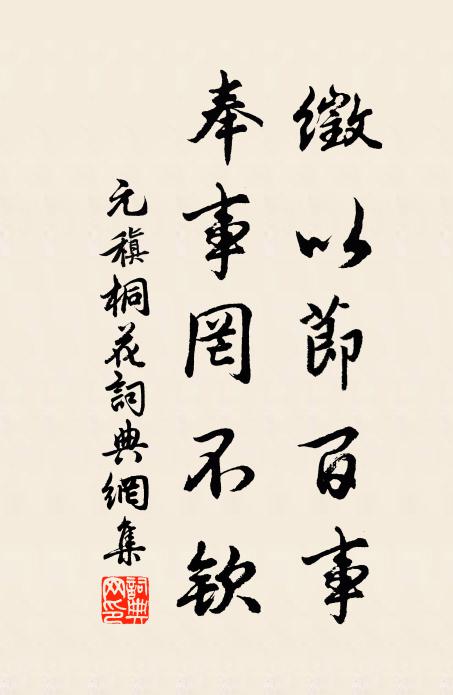 徵以節百事
奉事罔不欽
元稹桐花詞典網集
詞典网印